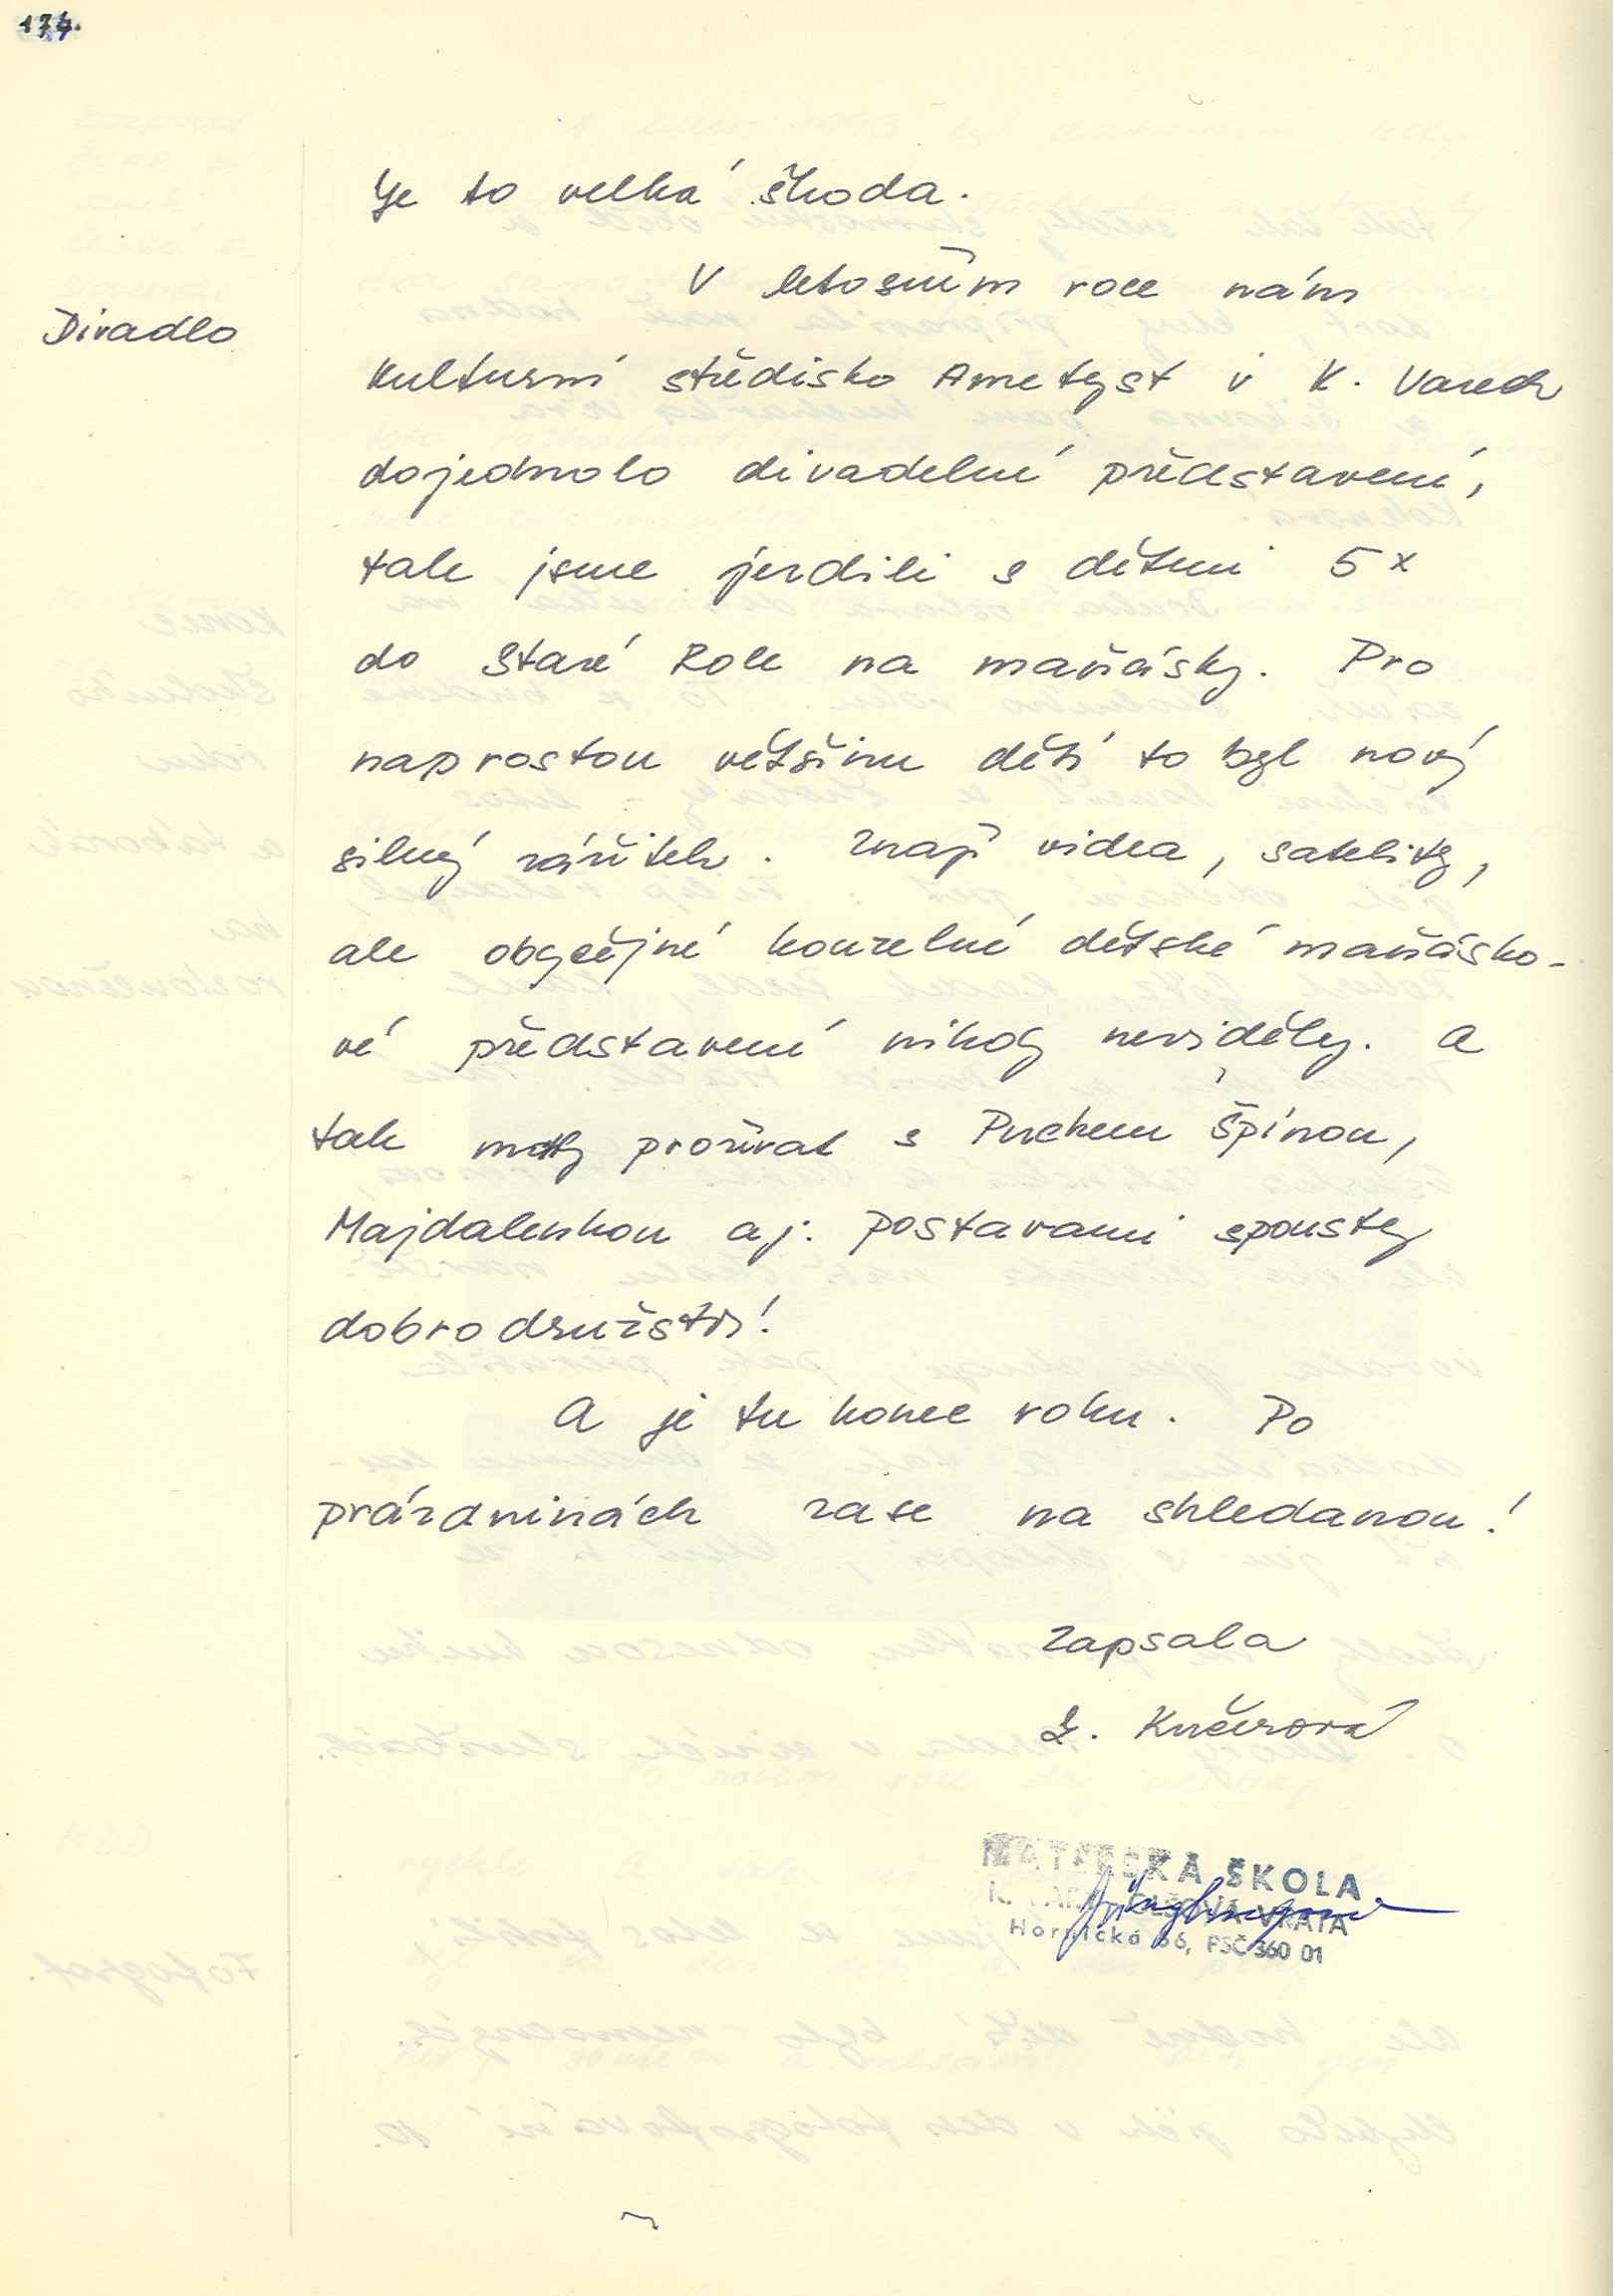 174.
Je to velká škoda.
V letošním roce nám
Divadlo
kulturní středisko Ametyst v K. Varech
dojednalo divadelní představení,
tak jsme jezdili s dětmi 5x
do Staré Role na maňásky. Pro
naprostou většinu dětí to byl nový
silný zážitek. Znají videa, satelity,
ale obyčejné kouzelné dětské maňásko-
vé představení nikdy neviděly. A
tak mohly prožívat s Puchem Špínou,
Majdalenkou aj. postavami spousty
dobrodružství!
A je tu konec roku. Po
prázdninách zase na shledanou!
Zapsala
Z. Kučerová
MATEŘSKÁ ŠKOLA
K. VARY, OLŠOVÁ VRATA
Hornická 36, PSČ 360 01